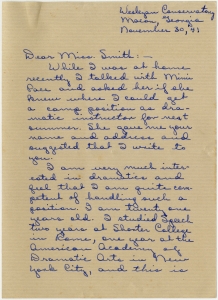 Wesleyan Conservatory
Macon, Georgia
November 30, '41
Dear Miss Smith:-
While I was at home
recently I talked with Mimi
Pace and asked her if she
knew where I could get
a camp position as dra-
matic instructor for next
summer. She gave me your
name and address and
suggested that I write to
you.
I am very much inter-
ested in dramatics and
feel that I am quite com-
petent of handling such a
position. I am twenty one
years old. I studied speech
two years at Shorter College
in Rome, one year at the
American Academy of
Dramatic Arts in New
York City, and this is